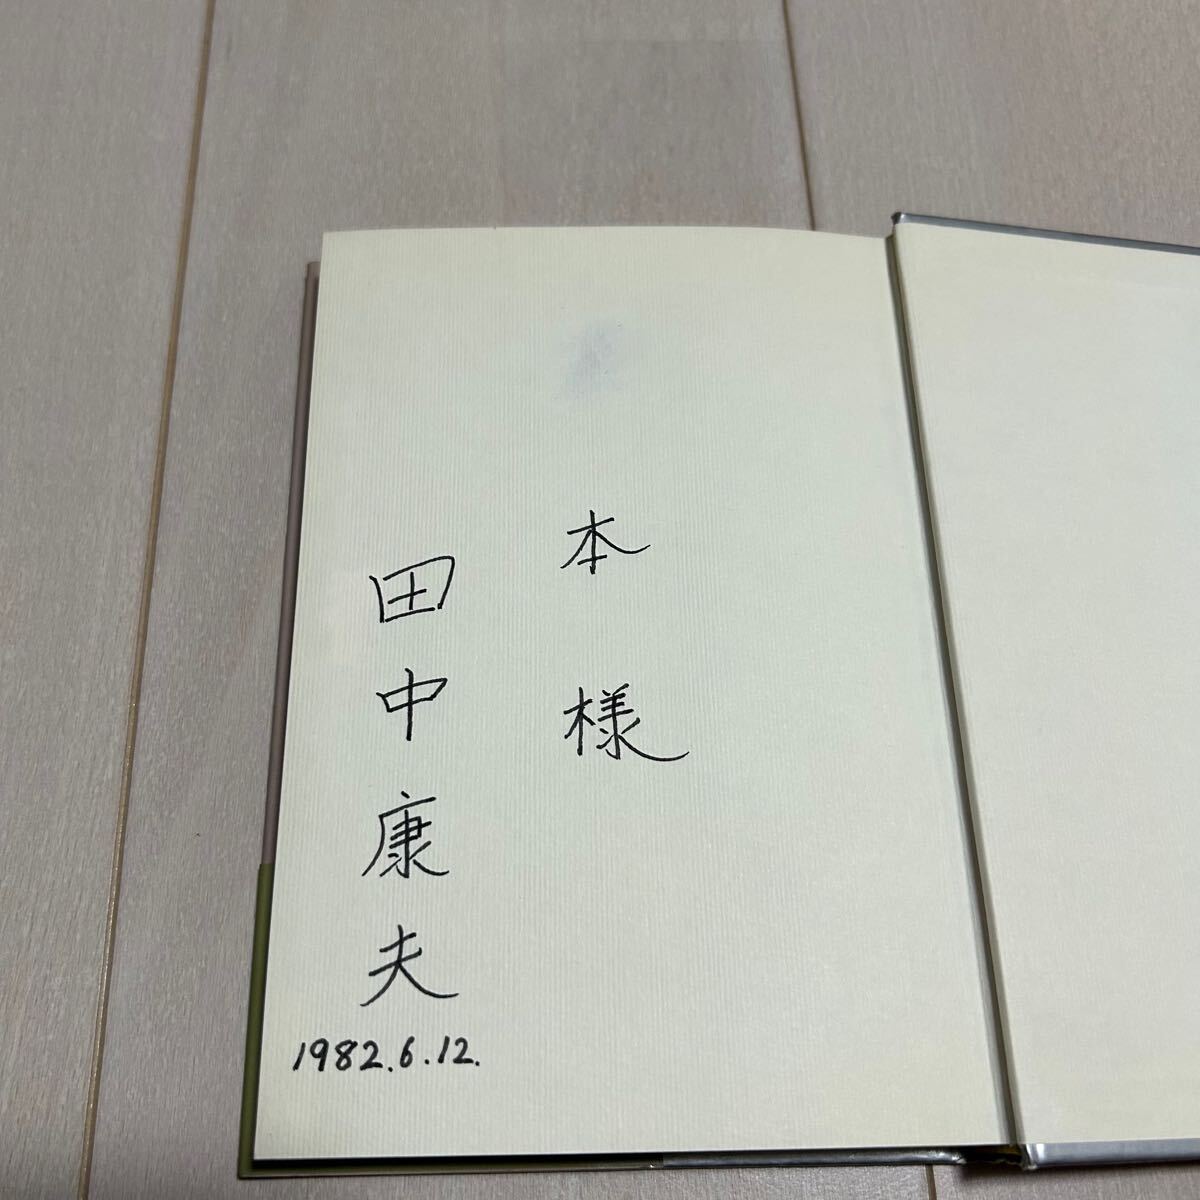 本様
田中康夫
1982.6.12.